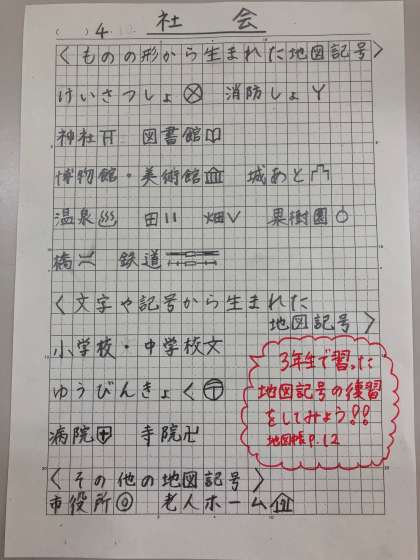 ( ) 4 社会
〈ものの形から生まれた地図記号〉
けいさつしょ 消防しょ
神社 図書館
博物館・美術館 城あと
温泉 田 畑 果樹園
橋 鉄道
〈文字や記号から生まれた
地図記号〉
小学校・中学校文
ゆうびんきょく〒
病院 寺院卍
〈その他の地図記号〉
市役所◎ 老人ホーム
3年生で習った
地図記号の復習
をしてみよう!!
地図帳P.12